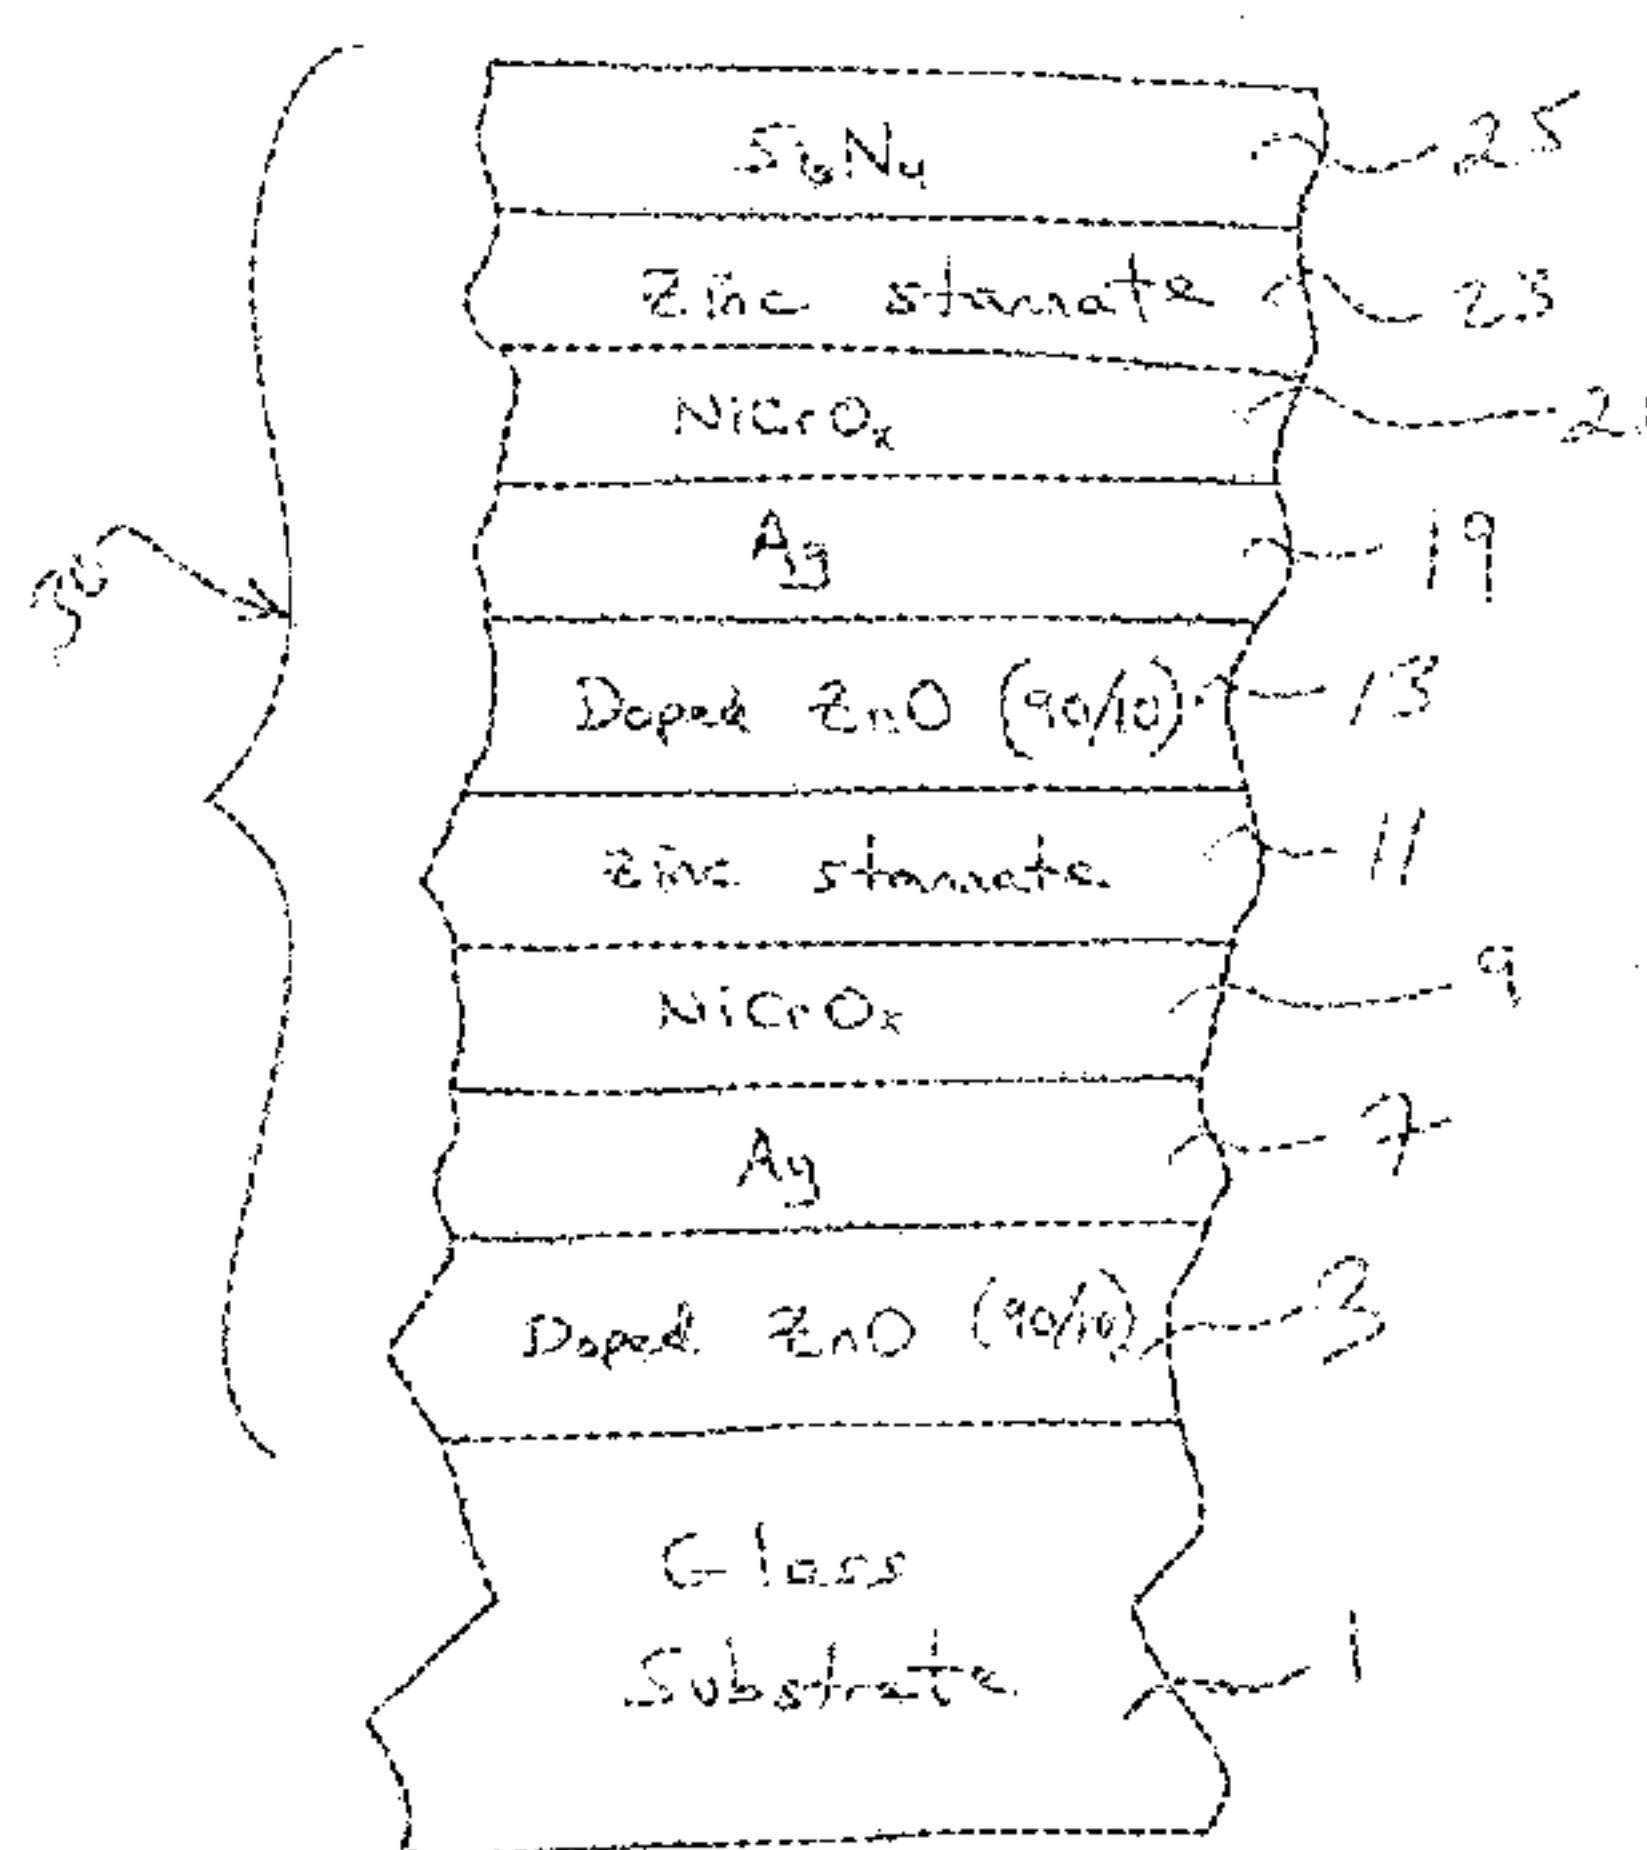 Si3N4 25
Zinc stannate 23
NiCrOx
Ag 19
30
Doped ZnO (90/10) 13
Zinc stannate 11
NiCrOx 9
Ag 7
Doped ZnO (90/10) 3
Glass
Substrate 1